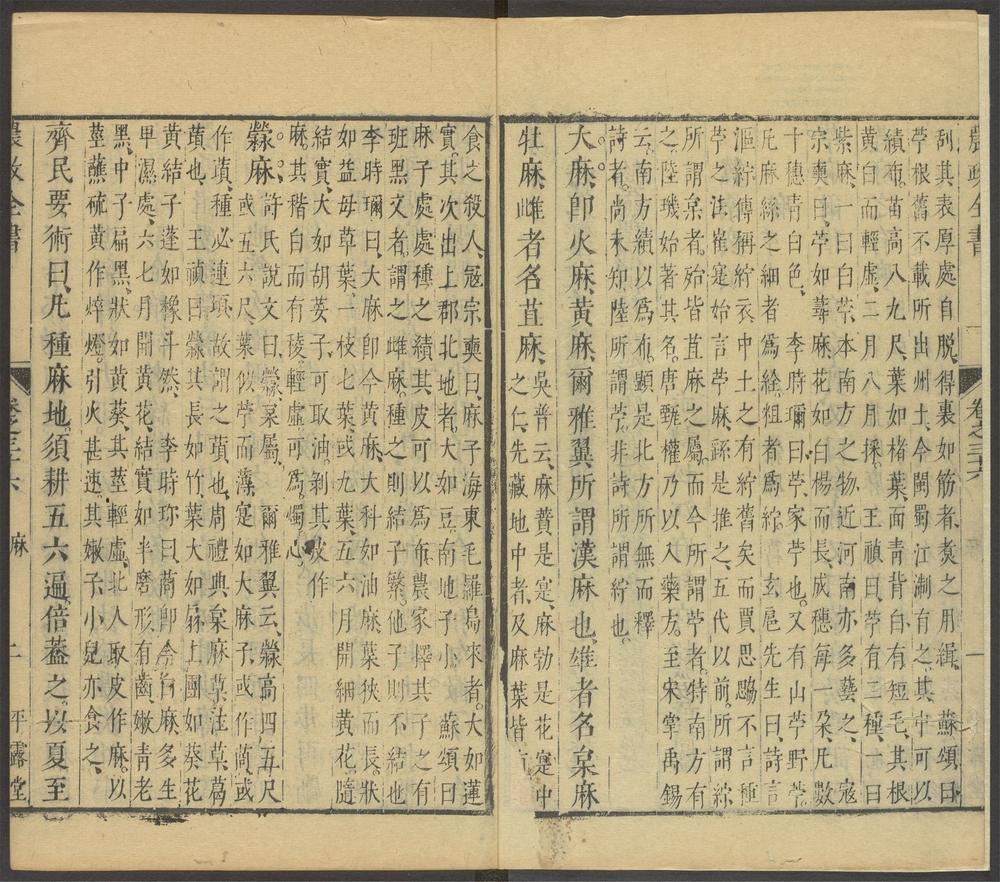 農政全書
卷之三十六
一
刮其表厚處自脫得裏如筋者煑之用緝 蘇頌曰
苧根舊不載所出州土今閩蜀江淛有之其中可以
績布苗高八九尺葉如楮葉面青背白有短毛其根
黃白而輕虛二月八月採 王禎曰苧有二種一曰
紫麻一曰白苧本南方之物近河南亦多藝之 寇
宗奭曰苧如蕁麻花如白楊而長成穗每一朵凡數
十穗青白色 李時珍曰苧家苧也又有山苧野苧
凡麻絲之細者爲絟粗者爲綜 玄扈先生曰詩言
漚綜傳稱紵衣中土之有紵舊矣而賈思勰不言種
苧之法崔寔始言苧麻繇是推之五代以前所謂綜
所謂枲者殆皆苴麻之屬而今所謂苧者特南方有
之陸璣始著其名唐甄權乃以入藥方至宋掌禹錫
云南方績以爲布顯是北方所無而釋
詩者尚未知陸所謂苧非詩所謂紵也
大麻卽火麻黃麻爾雅翼所謂漢麻也雄者名枲麻
牡麻雌者名苴麻 吳普云麻蕡是寔麻勃是花寔中
之仁先藏地中者及麻葉皆有
食之殺人寇宗奭曰麻子海東毛羅島來者大如蓮
實其次出上郡北地者大如豆南地子小 蘇頌曰
麻子處處種之績其皮可以爲布農家擇其子之有
班黑文者謂之雌麻種之則結子繁他子則不結也
李時珍曰大麻卽今黃麻大科如油麻葉狹而長狀
如益母草葉一枝七葉或九葉五六月開細黃花隨
結實大如胡荽子可取油剝其皮作
麻其稭白而有稜輕虛可爲燭心
檾麻 許氏說文曰檾枲屬爾雅翼云檾高四五尺
或五六尺葉似苧而薄寔如大麻子或作䔛或
作䔛種必連頃故謂之䔛也周禮典枲麻草注草葛
䔛也 王禎曰檾其長如竹葉大如扇上團如葵花
黃結子蓬如橡斗然 李時珍曰䔛卽今白麻多生
甲濕處六七月開黃花結實如半磨形有齒嫩青老
黑中子扁黑狀如黃葵其莖輕虛北人取皮作麻以
莖蘸硫黃作焠燈引火甚速其嫩子小兒亦食之
齊民要術曰凡種麻地須耕五六遍倍葢之以夏至
農政全書
卷之三十六 麻
二
平露堂